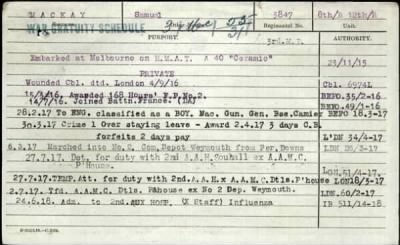 MACKAY Samuel 3847 8th/8 12th/8
WAR GRATUITY SCHEDULE Regimental No.
PURPORT. 3rd.M.D. AUTHORITY.
Embarked at Melbourne on H.M.A.T. A 40 "Ceramic" 23/11/15
PRIVATE
Wounded Cbl. dtd. London 4/9/16 Cbl. 6974L
15/3/16. Awarded 168 Hours' F.P.No.2. BEFO.35/2-16
14/7/16. Joined Battn.France. (DA) BEFO.49/1-16
28.2.17 To ENG. classified as a BOY. Mac. Gun. Gen. Bse.Camier BEFO 18.3-17
30.3.17 Crime 1 Over staying leave - Award 2.4.17 3 days C.B.
forfeits 2 days pay L'DN 34/4-17
6.3.17 Marched into No.2. Com.Depot Weymouth from Per.Downs LDN 26/3-17
27.7.17 Det. for duty with 2nd A.A.H.Southall ex A.A.M.C.
P'House.
27.7.17.TEMP.Att. for duty with 2nd.A.A.H.x A.A.M.C.Dtls.P'house LON18/3-17
2.7.17. Tfd. A.A.M.C. Dtls. P&house ex No 2 Dep. Weymouth. LDN.60/2-17
24.6.18. Adm. to 2nd.AUX HOSP. (X Staff) Influenza IB 511/14-18